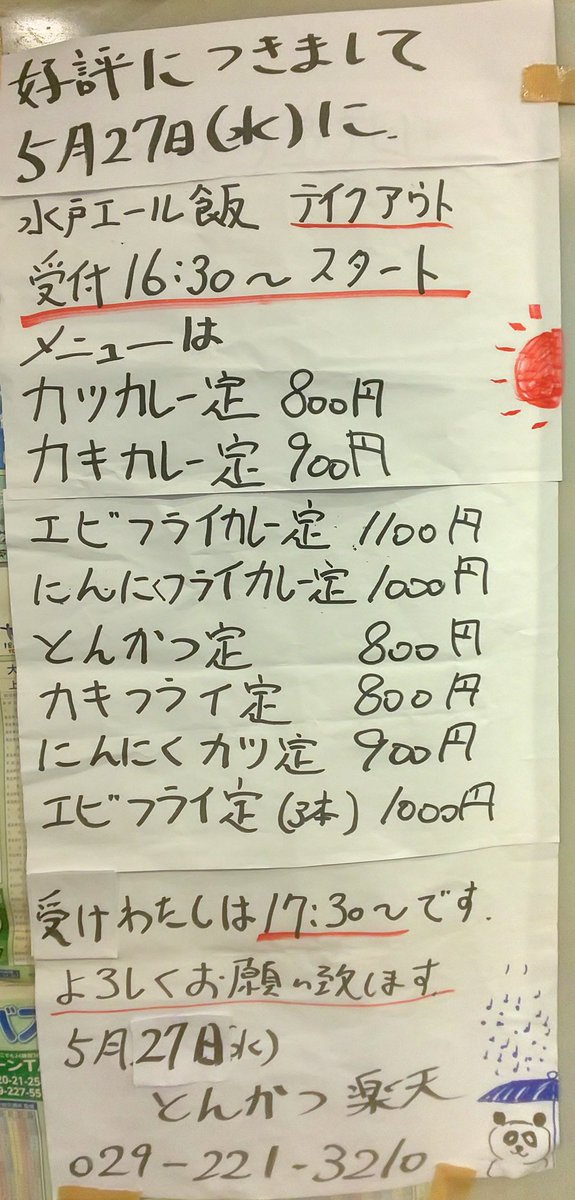 好評につきまして
5月27日(水)に
水戸エール飯 テイクアウト
受付16:30〜スタート
メニューは
カツカレー定 800円
カキカレー定 900円
エビフライカレー定 1100円
にんにくフライカレー定 1000円
とんかつ定 800円
カキフライ定 800円
にんにくカツ定 900円
エビフライ定(3本) 1000円
受けわたしは17:30〜です.
よろしくお願い致します
5月27日(水)
とんかつ 楽天
029-221-3210